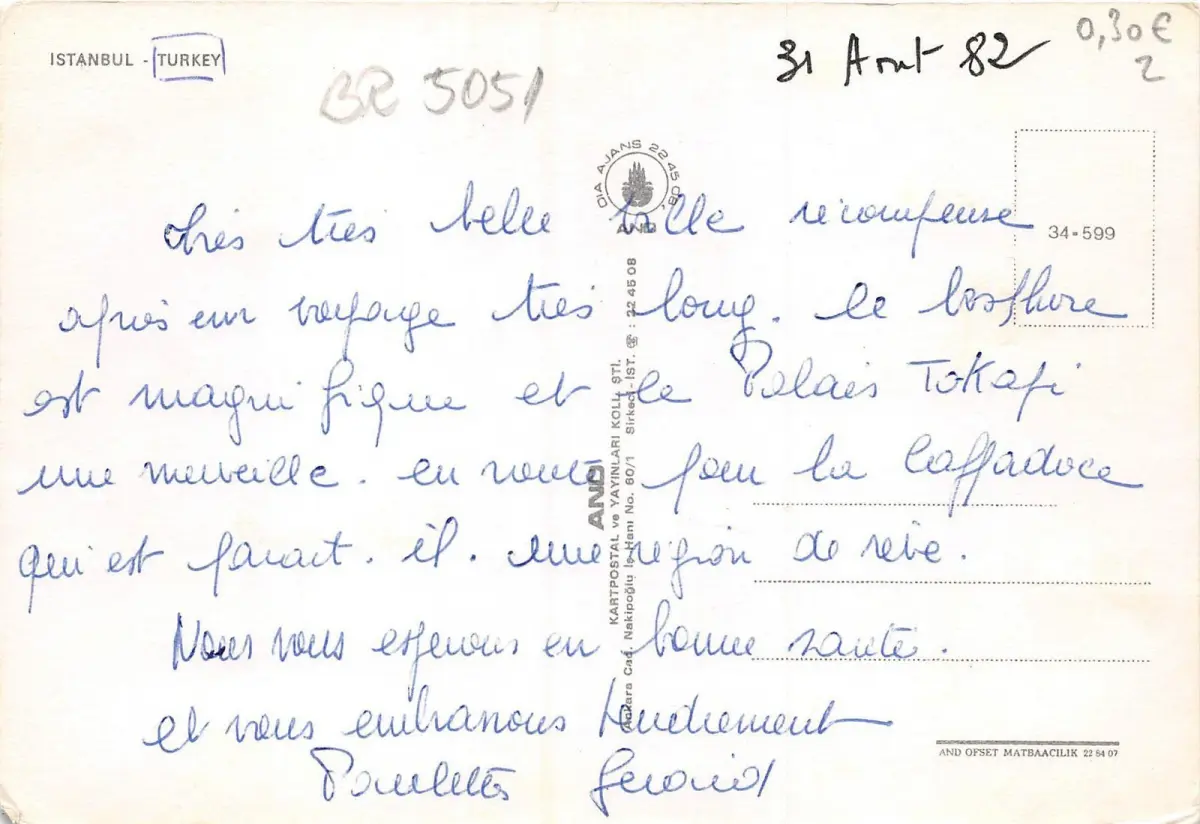 ISTANBUL - TURKEY
31 Aout 82
0,30€
2
BR 5051
DIA AJANS 22 45 08
AND
34-599
très très belle ville récompense
après un voyage très long. le bosphore
est magnifique et le Palais Tokapi
une merveille. en route pour la Cappadoce
qui est parait. il. une région de rêve.
Nous vous espérons en bonne santé.
et vous embrassons tendrement
Paulette Gerard
AND
KARTPOSTAL ve YAYINLARI KOLL. ŞTİ.
Ankara Cad. Nakipoğlu İş Hanı No. 60/1 Sirkeci-İST. ☎ : 22 45 08
AND OFSET MATBAACILIK 22 54 07